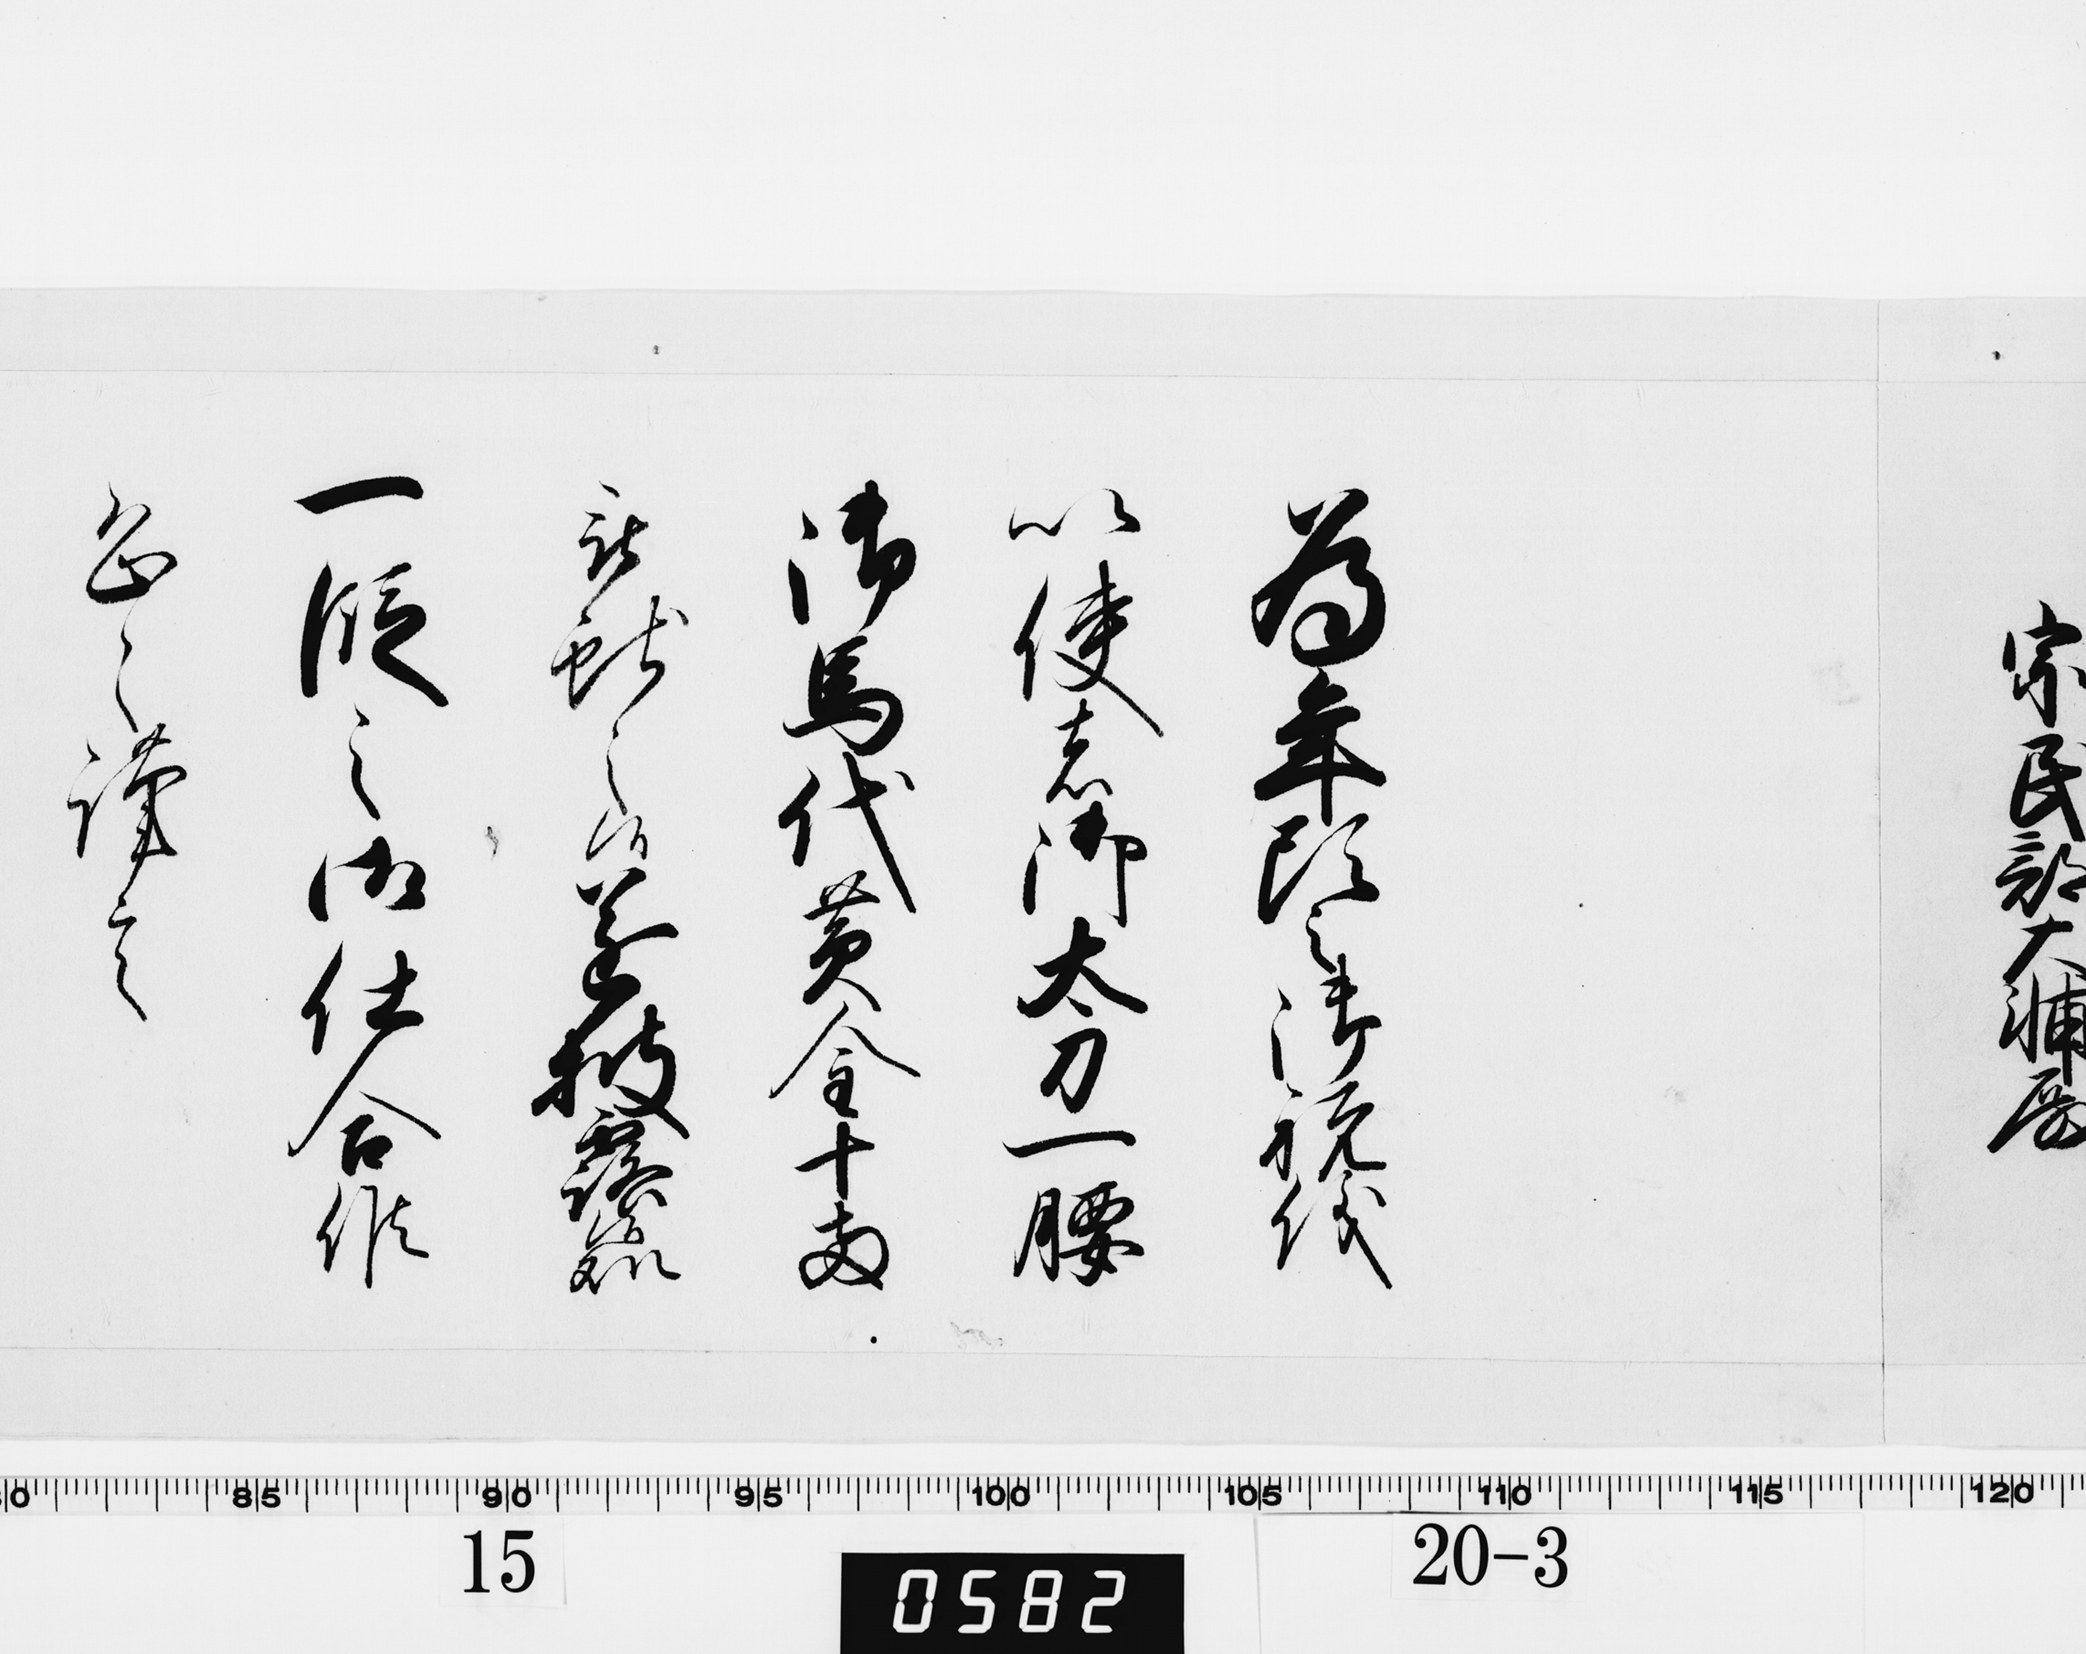 宗民部大輔殿
為年頭之御祝儀
以使者御太刀一腰
御馬代黄金十両
献之候遂披露
一段之御仕合候
恐々謹言
85 90 95 100 105 110 115 120
15
20-3
0582